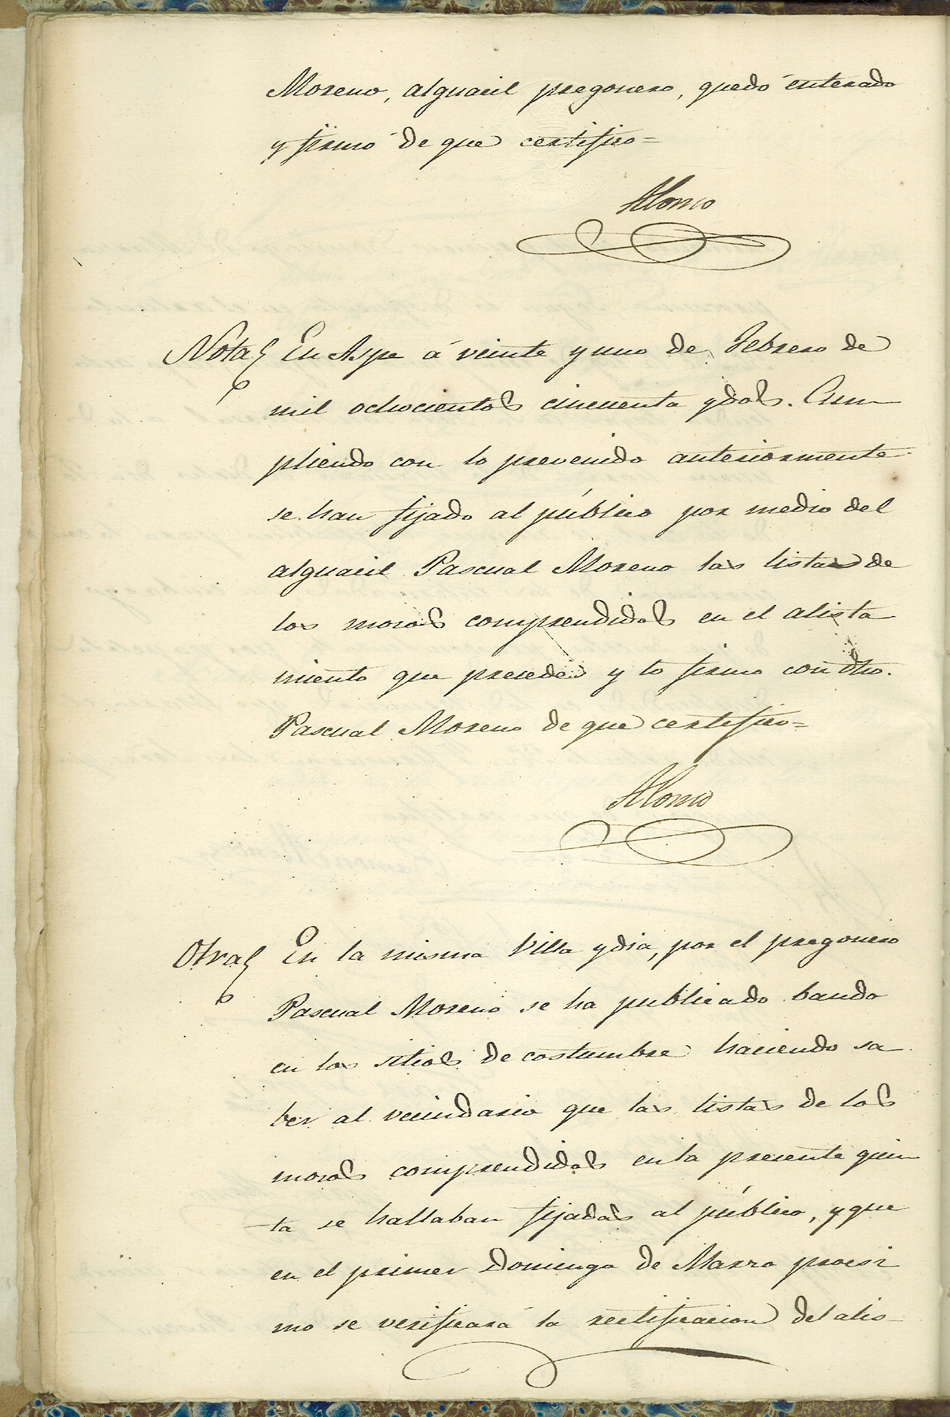 Moreno, alguacil pregonero, quedó enterado
y firmó de que certifico=
Alonso
Nota En Aspe á veinte y uno de Febrero de
mil ochocientos cincuenta y dos. Cum
pliendo con lo prevenido anteriormente
se han fijado al público por medio del
alguacil Pascual Moreno las listas de
los mozos comprendidos en el alista
miento que precede y lo firmo con dho.
Pascual Moreno de que certifico=
Alonso
Otra En la misma Villa y dia, por el pregonero
Pascual Moreno se ha publicado bando
en los sitios de costumbre haciendo sa
ber al vecindario que las listas de los
mozos comprendidos en la presente quin
ta se hallaban fijadas al público, y que
en el primer Domingo de Marzo procsi
mo se verificará la rectificacion del alis